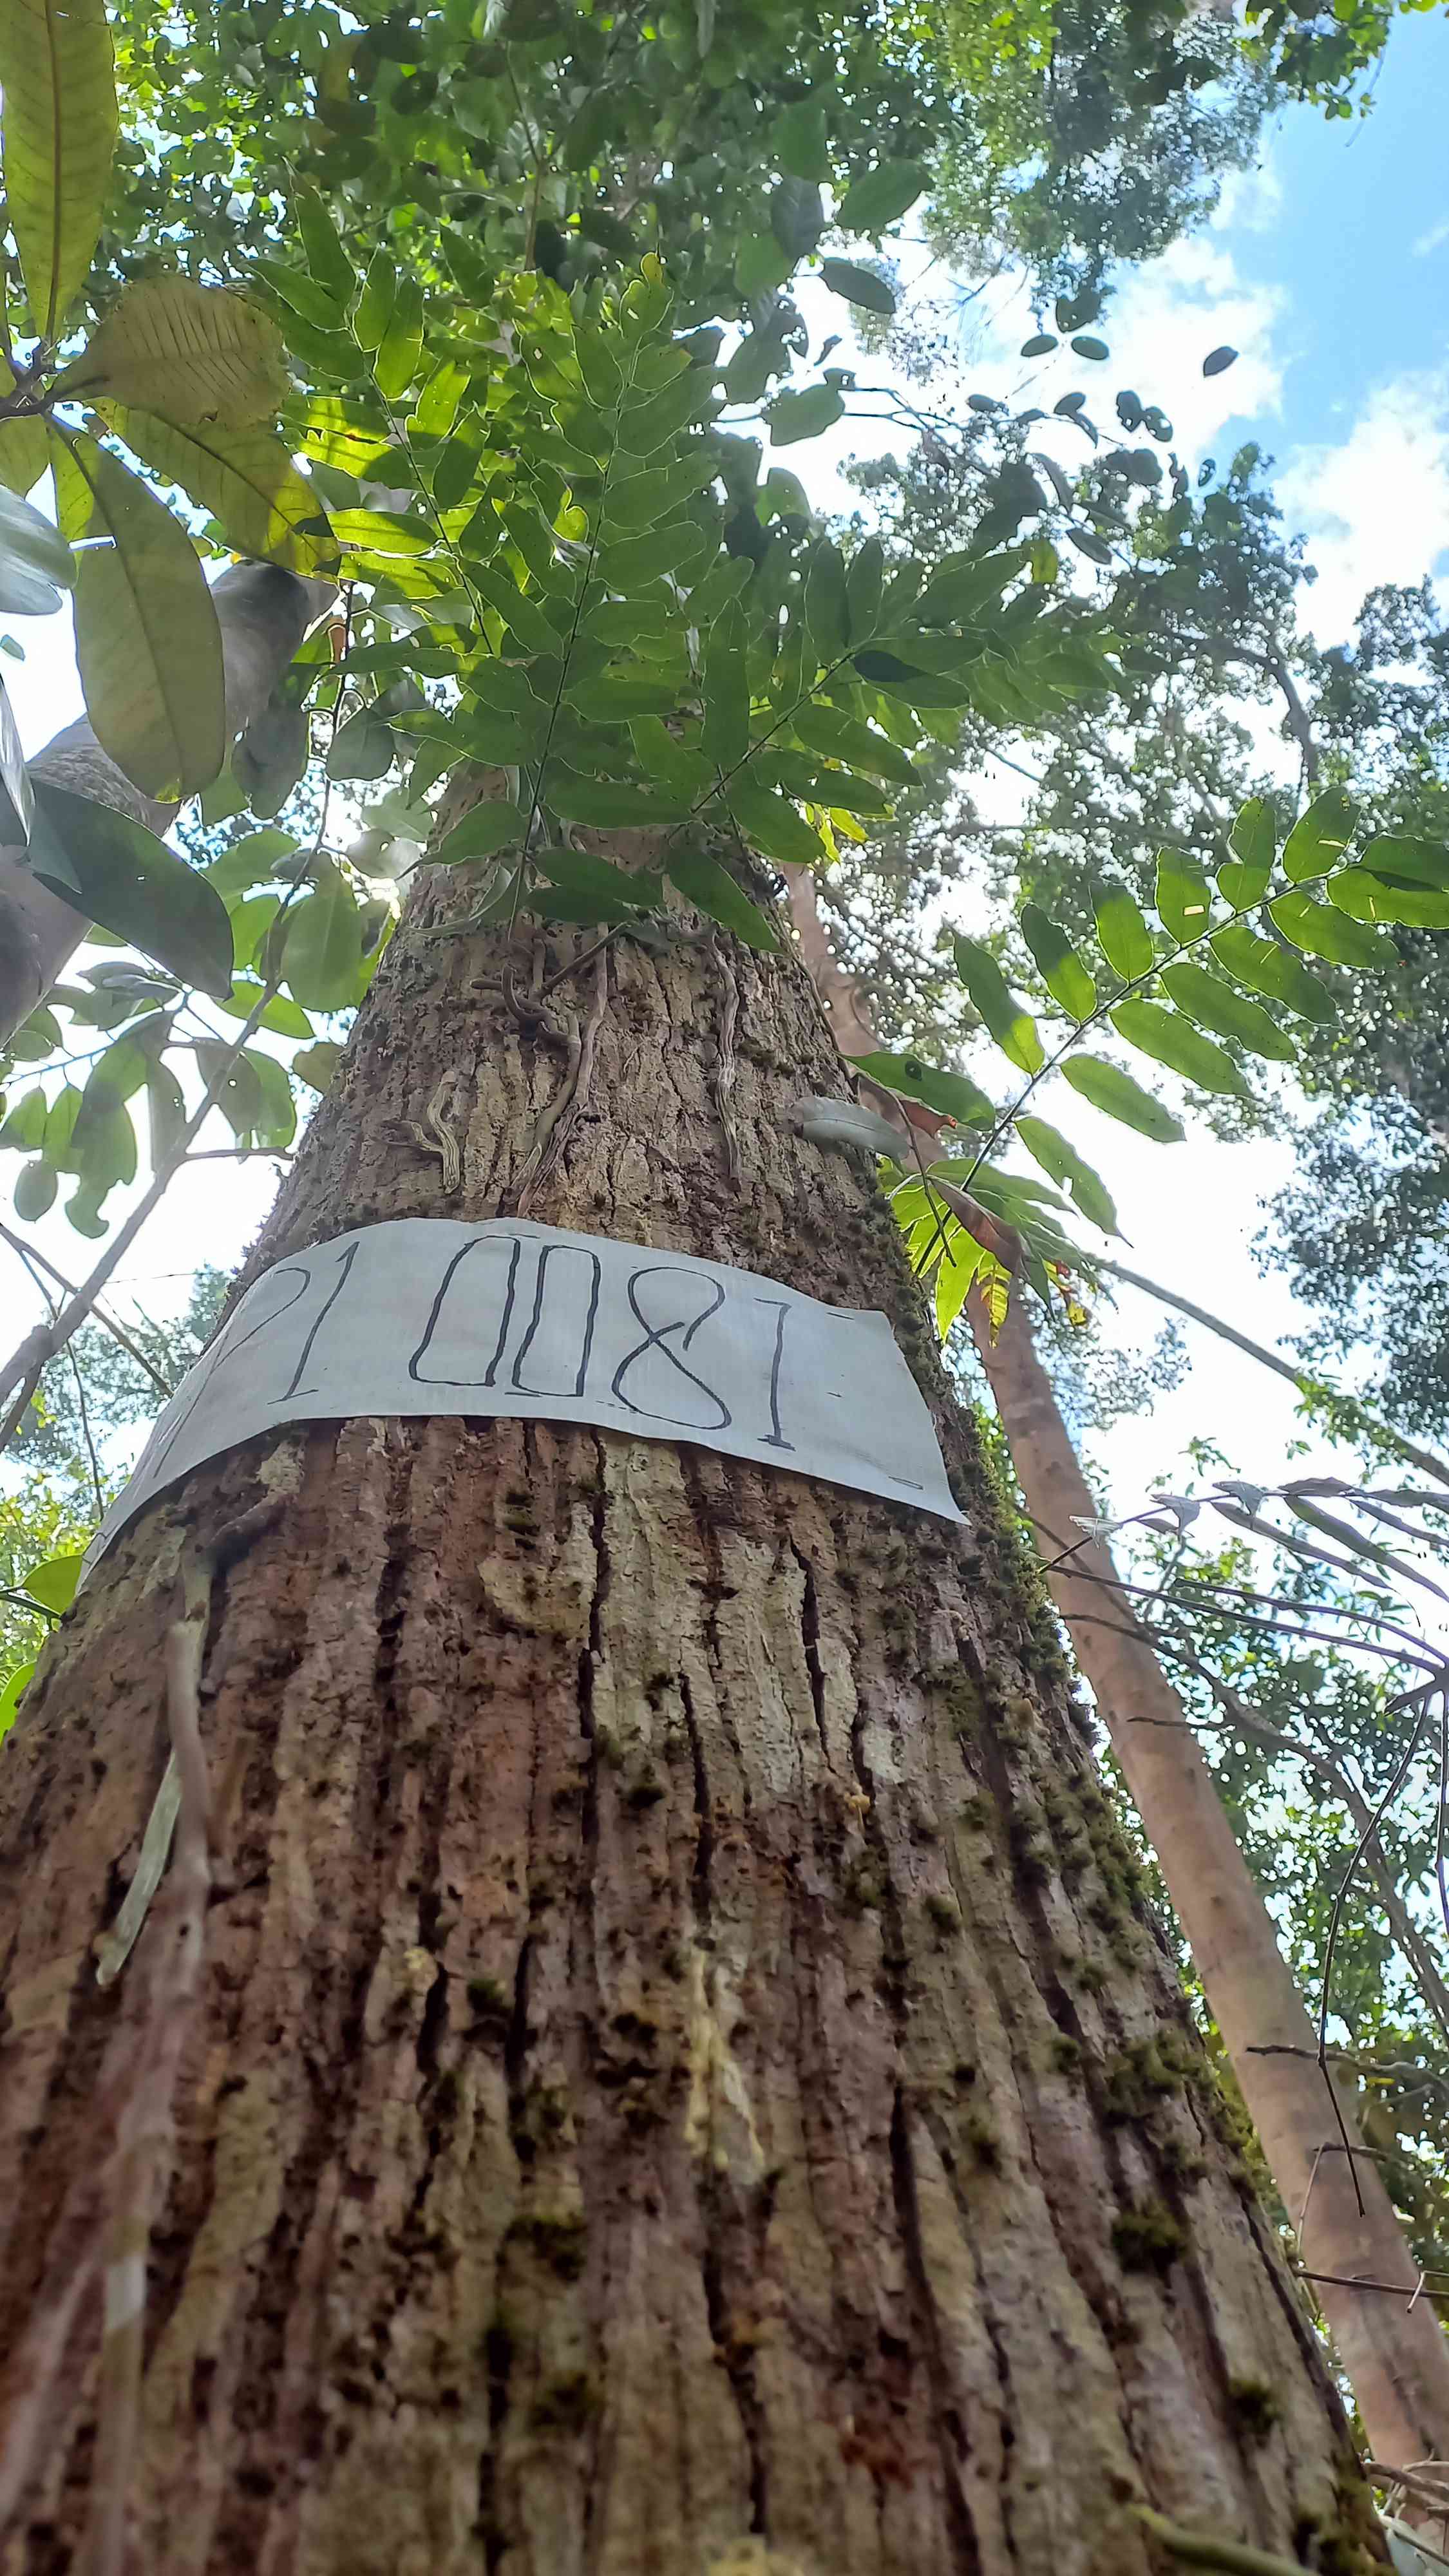 P1 0081